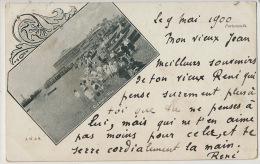 Le 9 mai 1900
Portsmouth
Mon vieux Jean
Meilleurs souvenirs
de ton vieux René qui
pense surement plus à
toi que tu ne penses à
lui, mais qui ne t'en aime
pas moins pour cela, et te
serre cordialement la main.
René